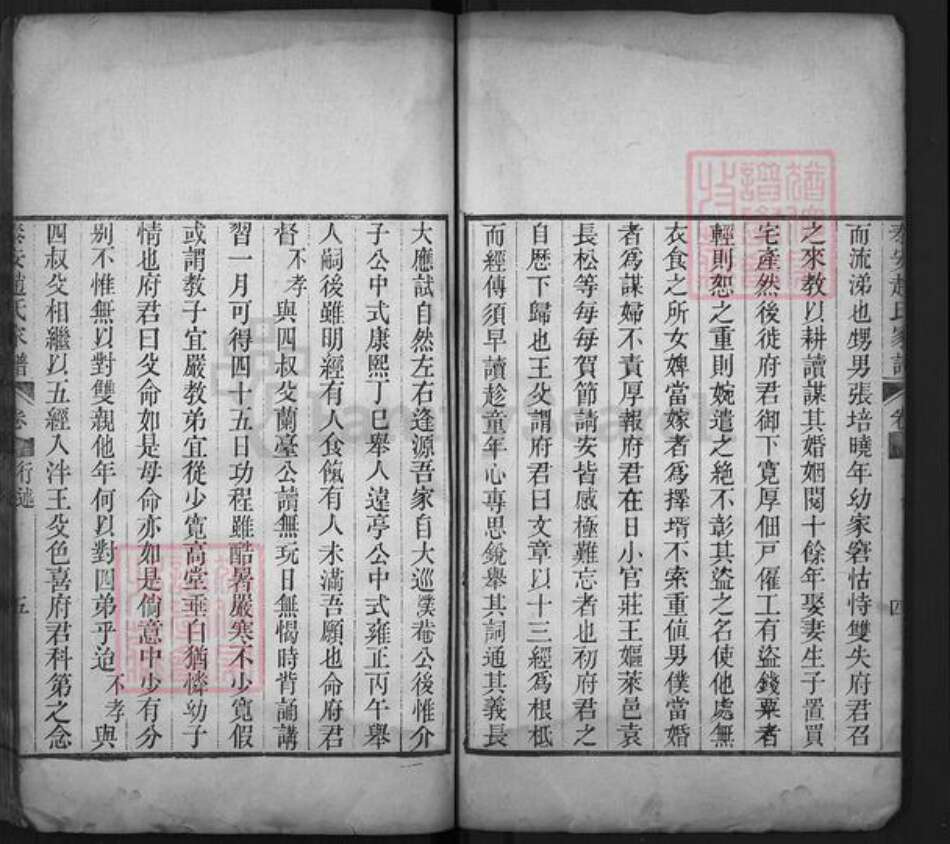 泰安趙氏家譜 卷 四
而流涕也甥男張培曉年幼家窘怙恃雙失府君召
之來教以耕讀謀其婚姻閱十餘年娶妻生子置買
宅產然後徙府君御下寬厚佃戸傭工有盜錢粟者
輕則恕之重則婉遣之絕不彰其盜之名使他處無
衣食之所女婢當嫁者為擇壻不索重值男僕當婚
者為謀婦不責厚報府君在日小官莊王嫗萊邑袁
長松等每每賀節請安皆感極難忘者也初府君之
自歴下歸也王父謂府君曰文章以十三經為根柢
而經傳須早讀趁童年心專思銳舉其詞通其義長
大應試自然左右逢源吾家自大巡濮菴公後惟介
子公中式康熙丁巳舉人遠亭公中式雍正丙午舉
人嗣後雖明經有人食餼有人未滿吾願也命府君
督不孝與四叔父蘭臺公讀無玩日無愒時背誦講
習一月可得四十五日功程雖酷暑嚴寒不少寬假
或謂教子宜嚴教弟宜從少寬高堂垂白猶憐幼子
情也府君曰父命如是母命亦如是倘意中少有分
别不惟無以對雙親他年何以對四弟乎迨不孝與
四叔父相繼以五經入泮王父色喜府君科第之念
泰安趙氏家譜 卷 行述 五